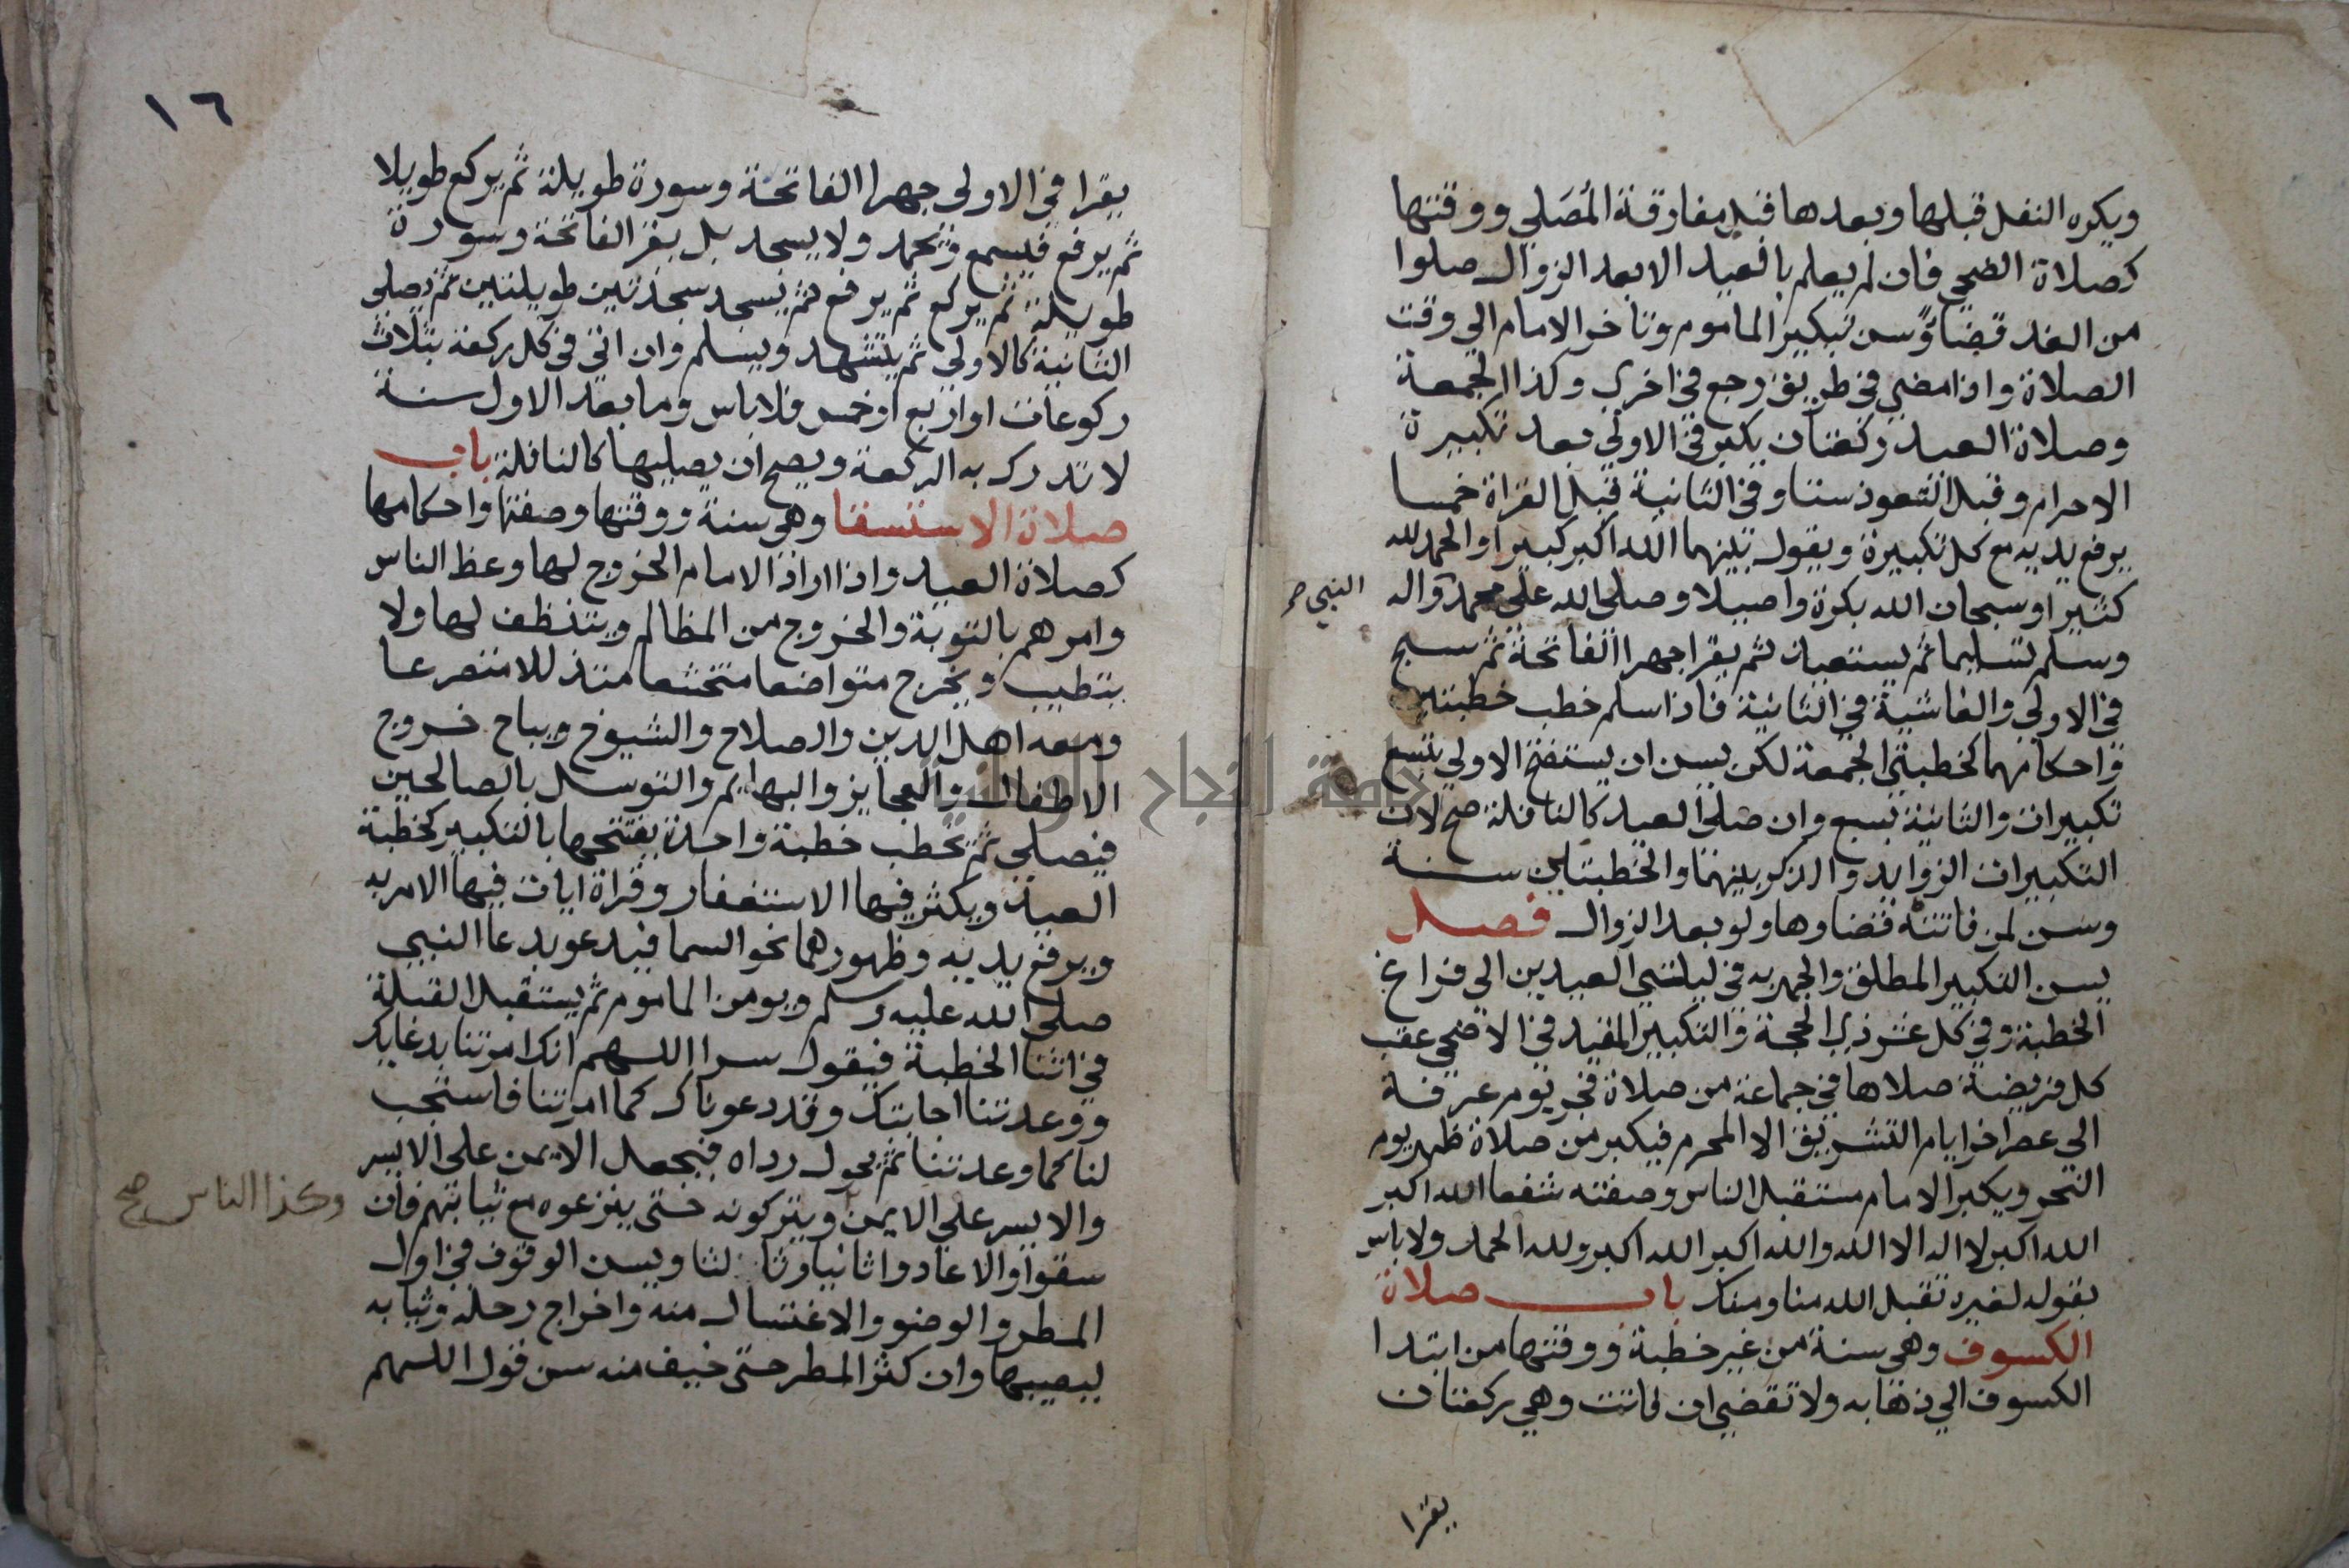 ويكره النفل قبلها وبعدها قبل مفارقة المُصَلي ووقتها
كصلاة الضحي فان لم يعلم بالعيد الا بعد الزوال صلوا
من الغد قضا وسن تبكير الماموم وتاخر الامام الي وقت
الصلاة واذا مضي في طريق رجع في اخري وكذا الجمعة
وصلاة العيد ركعتان يكبر في الاولي بعد تكبيرة
الاحرام وقبل التعوذ ستا وفي الثانية قبل القراة خمسا
يرفع يديه مع كل تكبيرة ويقول بينهما الله اكبر كبيرا والحمد لله
كثيرا وسبحان الله بكرة واصيلا وصلي الله علي محمد واله
النبي صح
وسلم تسليما ثم يستعيذ ثم يقرا جهرا الفاتحة ثم سبح
في الاولي والغاشية في الثانية فاذا سلم خطب خطبتين
واحكامهما كخطبتي الجمعة لكن يسن ان يستفتح الاولي بتسع
تكبيرات والثانية بسبع وان صلي العيد كالنافلة صح لان
التكبيرات الزوايد والذكر بينهما والخطبتين سنة
وسن لمن فاتته قضاوها ولو بعد الزوال فصل
يسن التكبير المطلق والجهر به في ليلتي العيدين الي فراغ
الخطبة وفي كل عشر ذي الحجة والتكبير المقيد في الاضحي عقب
كل فريضة صلاها في جماعة من صلاة فجر يوم عرفة
الي عصر اخر ايام التشريق الا المحرم فيكبر من صلاة ظهر يوم
النحر ويكبر الامام مستقبل الناس وصفته شفعا الله اكبر
الله اكبر لا اله الا الله والله اكبر الله اكبر ولله الحمد ولا باس
بقوله لغيره تقبل الله منا ومنك باب صلاة
الكسوف وهي سنة من غير خطبة ووقتها من ابتدا
الكسوف الي ذهابه ولا تقضي ان فاتت وهي ركعتان
يقرا
١٦
يقرا في الاولي جهرا الفاتحة وسورة طويلة ثم يركع طويلا
ثم يرفع فيسمع ويحمد ولا يسجد بل يقرا الفاتحة وسورة
طويلة ثم يركع ثم يرفع ثم يسجد سجدتين طويلتين ثم يصلي
الثانية كالاولي ثم يتشهد ويسلم وان اتي في كل ركعة بثلاث
ركوعات او اربع او خمس فلا باس وما بعد الاول سنة
لا تدرك به الركعة ويصح ان يصليها كالنافلة باب
صلاة الاستسقا وهي سنة ووقتها وصفتها واحكامها
كصلاة العيد واذا اراد الامام الخروج لها وعظ الناس
وامرهم بالتوبة والخروج من المظالم ويتنظف لها ولا
يتطيب ويخرج متواضعا متخشعا متذللا متضرعا
ومعه اهل الدين والصلاح والشيوخ ويباح خروج
الاطفال والعجايز والبهايم والتوسل بالصالحين
فيصلي ثم يخطب خطبة واحدة يفتتحها بالتكبير كخطبة
العيد ويكثر فيها الاستغفار وقراة ايات فيها الامر به
ويرفع يديه وظهورهما نحو السما فيدعو بدعا النبي
صلي الله عليه وسلم ويومن الماموم ثم يستقبل القبلة
في اثنا الخطبة فيقول سرا اللهم انك امرتنا بدعايك
ووعدتنا اجابتك وقد دعوناك كما امرتنا فاستجب
لنا كما وعدتنا ثم يحول رداه فيجعل الايمن علي الايسر
والايسر علي الايمن ويتركونه حتي ينزعوه مع ثيابهم فان
وكذا الناس صح
سقوا والا عادوا ثانيا وثالثا ويسن الوقوف في اول
المطر والوضو والاغتسال منه واخراج رحله وثيابه
ليصيبها وان كثر المطر حتي خيف منه سن قول اللهم
جامعة النجاح الوطنية